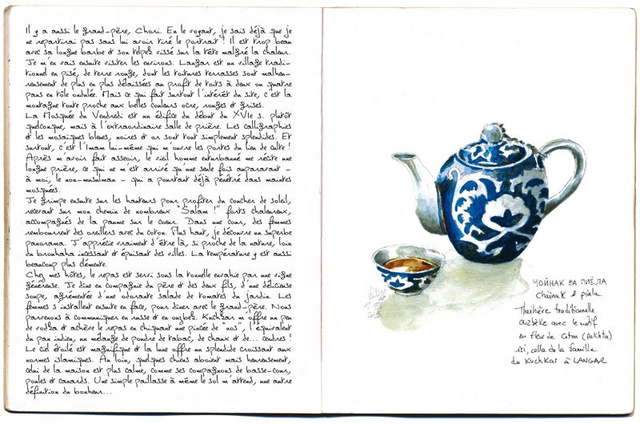 Il y a aussi le grand-père, Chori. En le voyant, je sais déjà que je
ne repartirai pas sans lui avoir tiré le portrait ! Il est trop beau
avec sa longue barbe et son tépés vissé sur la tête malgré la chaleur.
Je m'en vais ensuite visiter les environs. Langar est un village tradi-
tionnel en pisé, de terre rouge, dont les toitures terrasses sont malheu-
reusement de plus en plus délaissées au profit de toits à deux ou quatre
pans en tôle ondulée. Mais ce qui fait surtout l'intérêt du site, c'est la
montagne toute proche aux belles couleurs ocre, rouges et grises.
La Mosquée du Vendredi est un édifice du début du XVIe s. plutôt
quelconque, mais à l'extraordinaire salle de prière. Les calligraphies
et les mosaïques bleues, noires et or sont tout simplement splendides. Et
surtout, c'est l'Imam lui-même qui m'ouvre les portes du lieu de culte !
Après m'avoir fait asseoir, le vieil homme enturbanné me récite une
longue prière, ce qui ne m'est arrivé qu'une seule fois auparavant -
à moi, le non-musulman - qui a pourtant déjà pénétré dans maintes
mosquées.
Je grimpe ensuite sur les hauteurs pour profiter du coucher de soleil,
recevant sur mon chemin de nombreux "Salam !" forts chaleureux,
accompagnés de la paume sur le cœur. Dans une cour, des femmes
rembourrent des oreillers avec du coton. Plus haut, je découvre un superbe
panorama. J'apprécie vraiment d'être là, si proche de la nature, loin
du brouhaha incessant et épuisant des villes. La température y est aussi
beaucoup plus clémente.
Chez mes hôtes, le repas est servi sous la tonnelle envahie par une vigne
généreuse. Je dîne en compagnie du père et des deux fils, d'une délicieuse
soupe, agrémentée d'une odorante salade de tomates du jardin. Les
femmes s'installent ensuite en face, pour dîner avec le grand-père. Nous
parvenons à communiquer en russe et en ouzbek. Kuchkar m'offre un pan
de vodka et achève le repas en chiquant une pincée de "nos", l'équivalent
du pan indien, un mélange de poudre de tabac, de chaux et de... cendres !
Le ciel étoilé est magnifique et la lune offre un splendide croissant aux
normes islamiques. Au loin, quelques chiens aboient mais heureusement,
celui de la maison est plus calme, comme ses compagnons de basse-cour,
poules et canards. Une simple paillasse à même le sol m'attend, une autre
définition du bonheur...
ЧОЙНАК ВА ПИЁЛА
choinak & piala
Theière traditionnelle
ouzbèke avec le motif
en fleur de coton (pakhta)
ici, celle de la famille
de Kuchkar à LANGAR